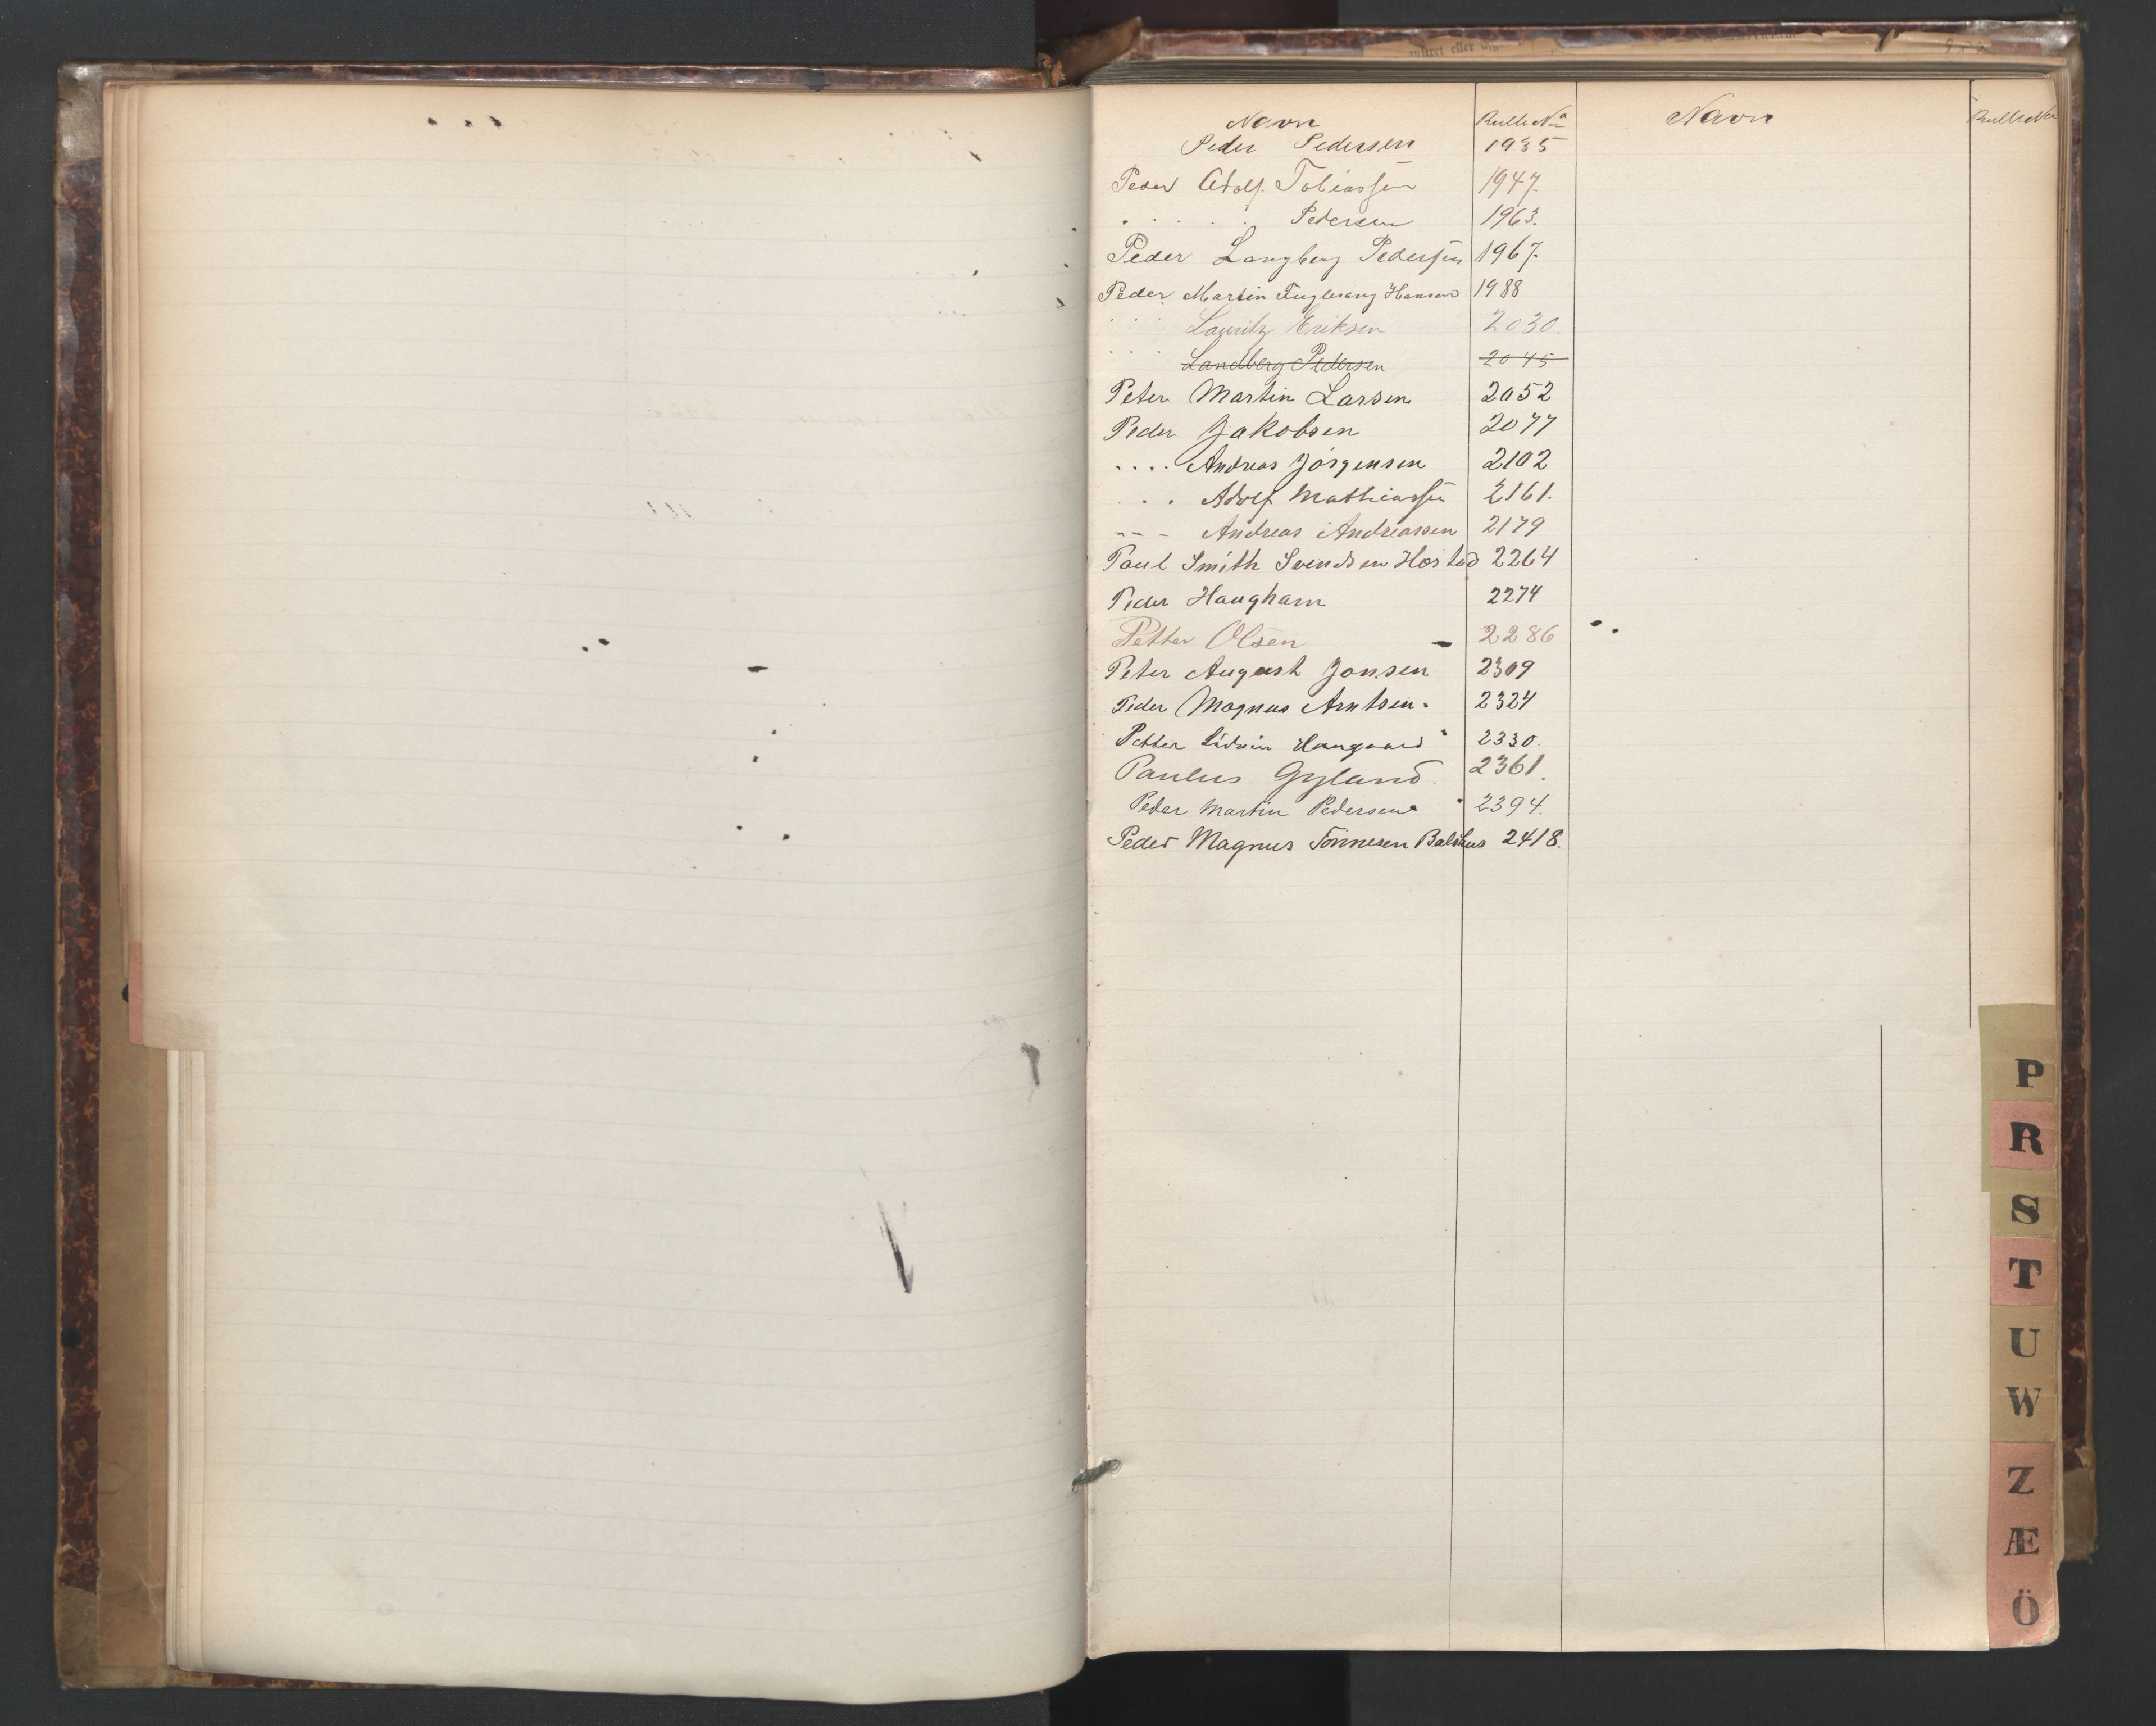 Navn Rulle No Navn Rulle No
Peder Pedersen 1935
Peder Adolf Tobiassen 1947.
. . . . . Pedersen 1963.
Peder Langberg Pedersen 1967.
Peder Martin Fuglevang Hansen 1988
. . . Lauritz Eriksen 2030.
. . . Landberg Pedersen 2045
Peter Martin Larsen 2052
Peder Jakobsen 2077
.... Andreas Jörgensen 2102
. . . Adolf Mathiassen 2161.
- - - Andreas Andreassen 2179
Paul Smith Svendsen 2264
Peder Haugham 2274
Petter Olsen 2286
Peter August Jonsen 2309
Peder Magnus Arntsen. 2324
Petter Haugaard 2330.
Paulus Gyland. 2361.
Peder Martin Pedersen 2394.
Peder Magnus Tönnesen 2418.
P
R
S
T
U
W
Z
Æ
Ö